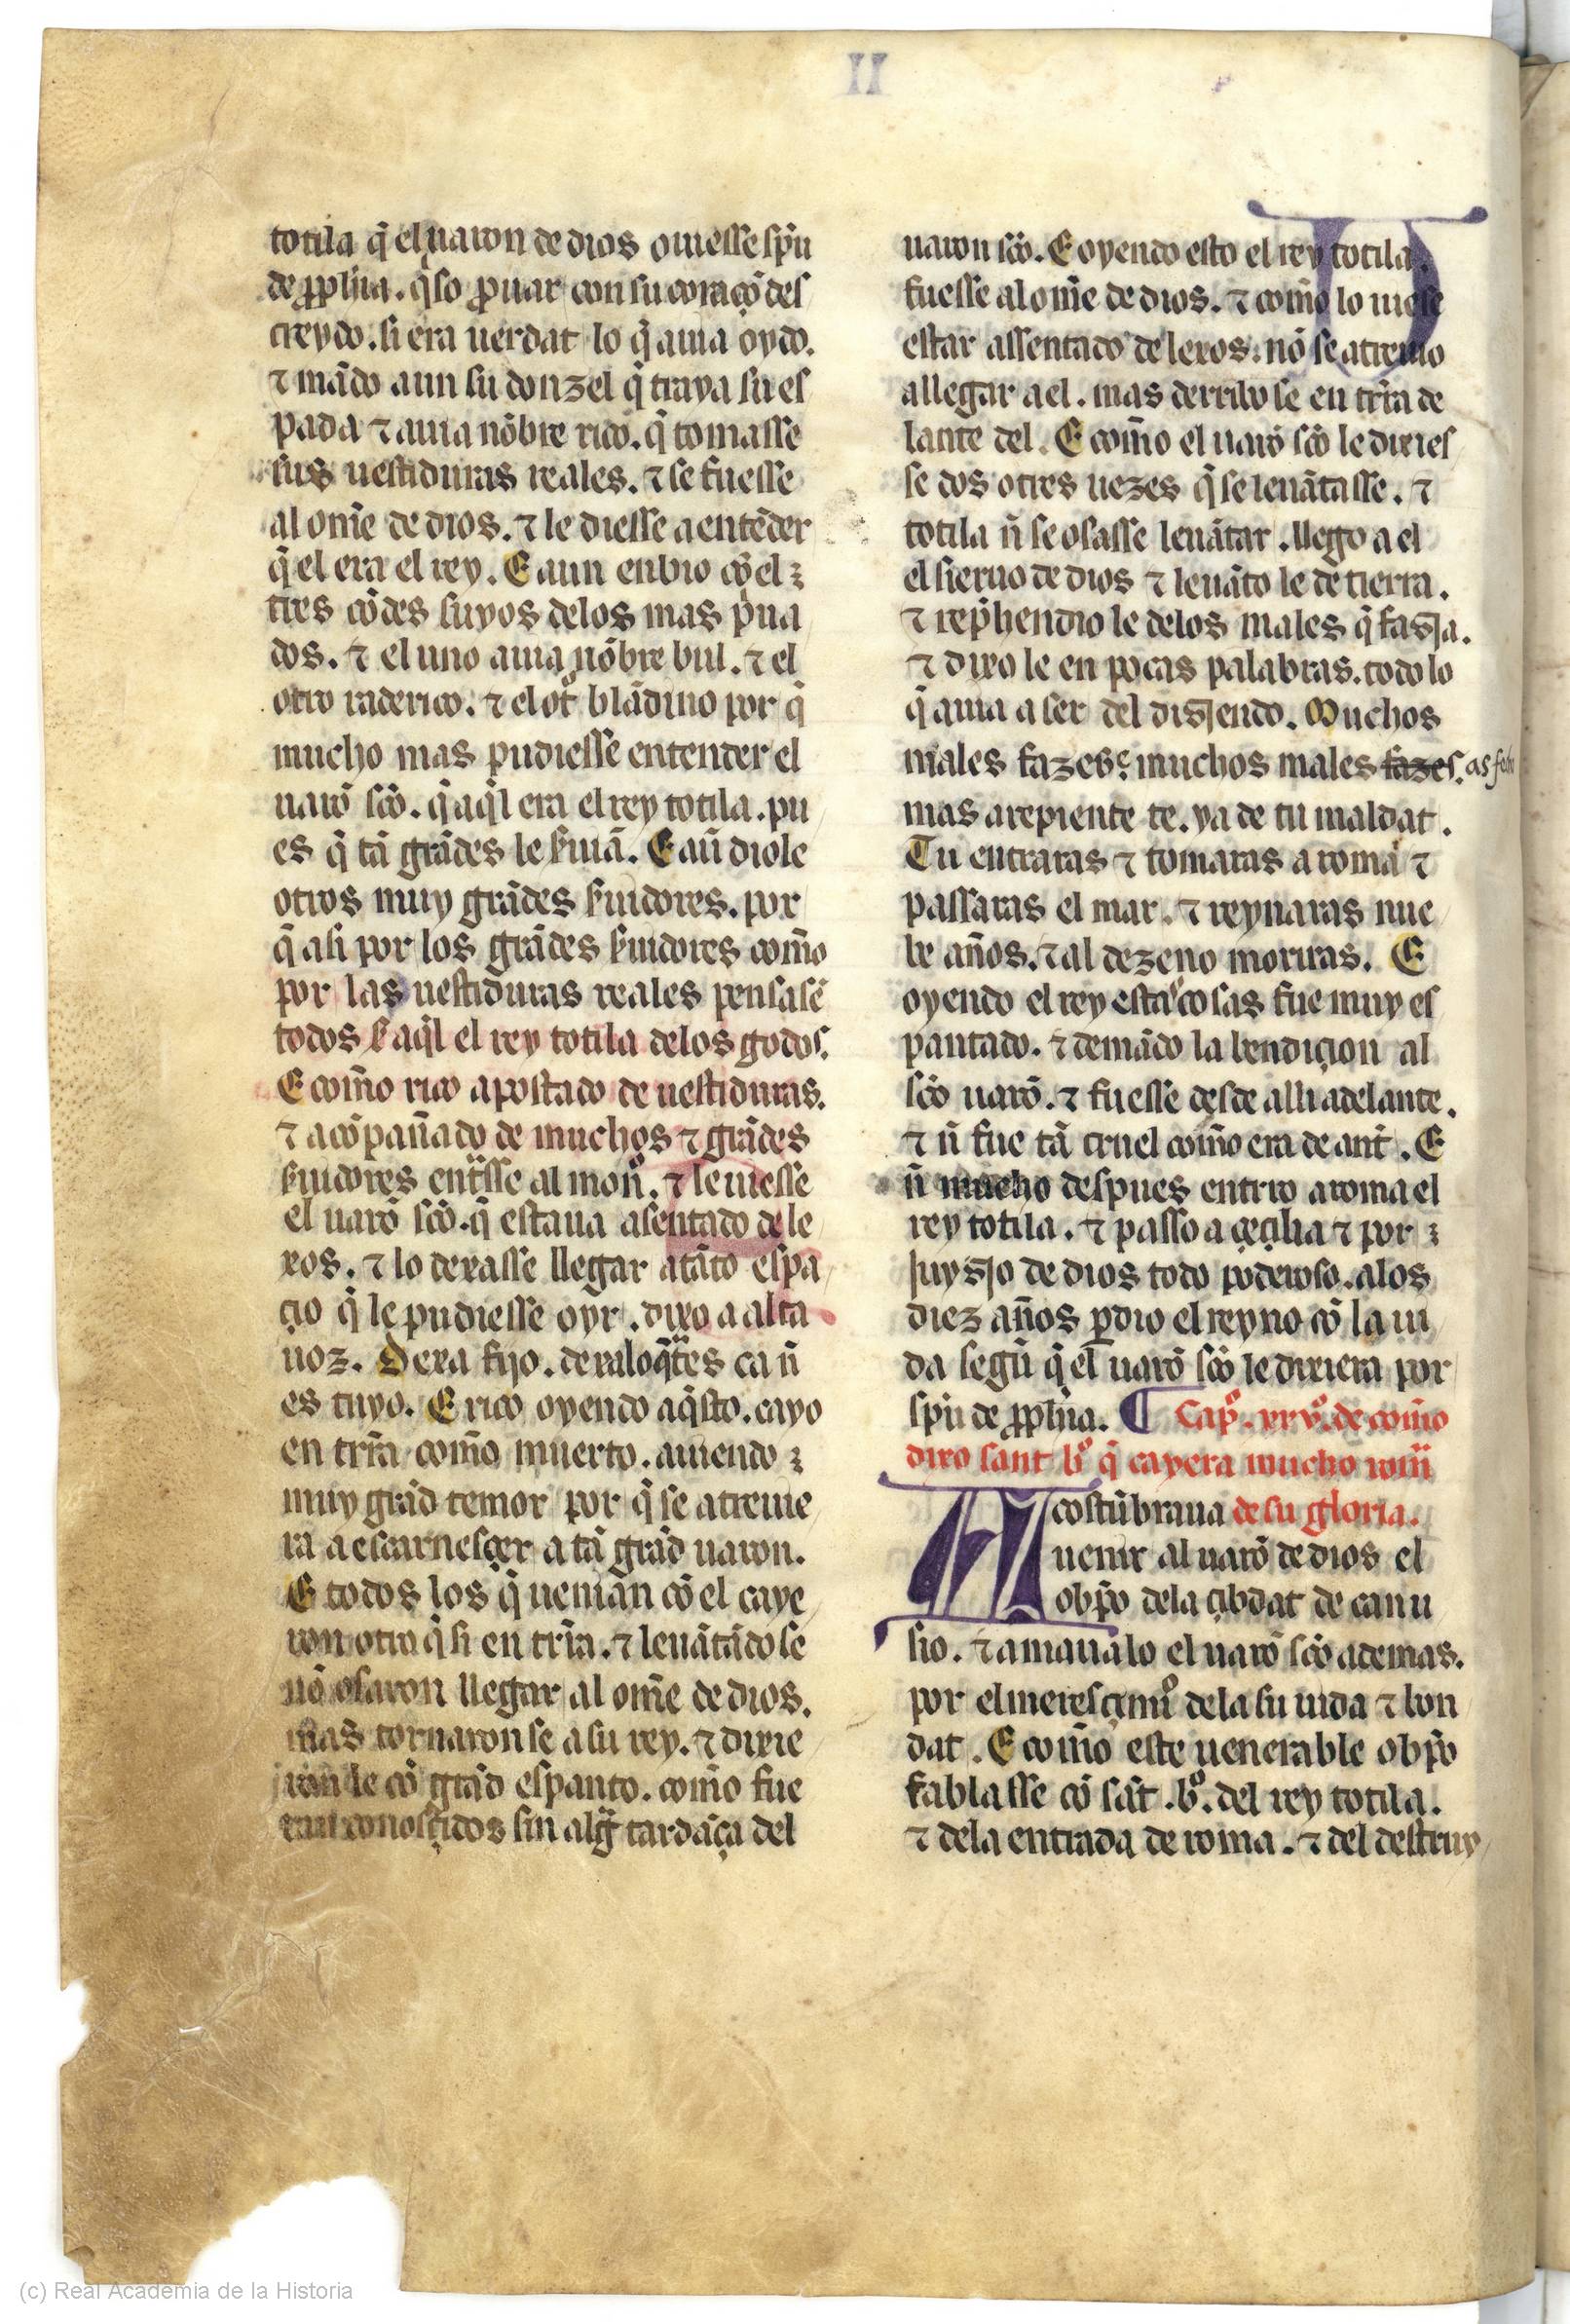 II
totila q̃ el uaron de dios ouiesse sp̃u
de ꝓph̃ia. q̃so ꝓuar con su coraçõ des
creydo. si era uerdat lo q̃ auia oydo.
⁊ mãdo a un su donzel q̃ traya su es
pada ⁊ auia nõbre rico. q̃ tomasse
sus uestiduras reales. ⁊ se fuesse
al om̃e de dios. ⁊ le diesse a entẽder
q̃ el era el rey. E aun enbio cõ el
tres cõdes suyos delos mas p̃ua
dos. ⁊ el uno auia nõbre bul. ⁊ el
otro raderico. ⁊ el ot̊ blãdino por q̃
mucho mas pudiesse entender el
uarõ sc̃o. q̃ aq̃l era el rey totila. pu
es q̃ tã grãdes le s̃uiã. E aũ diole
otros muy grãdes s̃uidores. por
q̃ asi por los grãdes s̃uidores com̃o
por las uestiduras reales pensasẽ
todos s̃ aq̃l el rey totila delos godos.
E com̃o rico apostado de uestiduras.
⁊ acõpañado de muchos ⁊ grãdes
s̃uidores entᵃsse al moñ. ⁊ le uiesse
el uarõ sc̃o. q̃ estaua asentado de le
xos. ⁊ lo dexasse llegar a tãto espa
çio q̃ le pudiesse oyr. dixo a alta
uoz. Dexa fijo. dexa lo q̃ tᵃes ca ñ
es tuyo. E rico oyendo aq̃sto. cayo
en trr̃a com̃o muerto. auiendo
muy grãd temor por q̃ se atreuie
ra a escarnesçer a tã grãd uaron.
E todos los q̃ uenian cõ el caye
ron otro q̃ si en trr̃a. ⁊ leuãtãdo se
nõ osaron llegar al om̃e de dios.
mas tornaron se a su rey. ⁊ dixie
ron le cõ grãd espanto. com̃o fue
ran conosçidos sin algᵃ tardãça del
uaron sc̃o. E oyendo esto el rey totila.
fuesse al om̃e de dios. ⁊ com̃o lo uiese
estar assentado de lexos. nõ se atreuio
allegar a el. mas derribo se en trr̃a de
lante del. E com̃o el uarõ sc̃o le dixies
se dos o tres uezes q̃ se leuãtasse. ⁊
totila ñ se osasse leuãtar. llego a el
el sieruo de dios ⁊ leuãto le de tierra.
⁊ rep̃hendio le delos males q̃ fasia.
⁊ dixo le en pocas palabras. todo lo
q̃ auia a ser del disiendo. Muchos
males fazes ⁊ muchos males fazes. as fe
mas arepiente te. ya de tu maldat.
Tu entraras ⁊ tomaras a roma ⁊
passaras el mar. ⁊ reynaras nue
be años. ⁊ al dezeno moriras. E
oyendo el rey estas cosas fue muy es
pantado. ⁊ demãdo la bendiçion al
sc̃o uarõ. ⁊ fuesse desde alli adelante.
⁊ ñ fue tã cruel com̃o era de ant̃. E
ñ mucho despues entro a roma el
rey totila. ⁊ passo a çeçilia ⁊ por
juysio de dios todo poderoso. a los
diez años ꝑdio el reyno cõ la ui
da segũ q̃ el uarõ sc̃o le dixiera por
sp̃u de ꝓph̃ia. ¶ Cap̊. xxv̊. de com̃o
dixo sant b̊ q̃ cayera mucho rom̃
Acostũbraua de su gloria.
uenir al uarõ de dios el
obp̃o dela çibdat de canu
sio. ⁊ amaualo el uarõ sc̃o ademas.
por el meresçimi̊ dela su uida ⁊ bon
dat. E com̃o este uenerable obp̃o
fablasse cõ sãt. b̊. del rey totila.
⁊ dela entrada de roma. ⁊ del destruy
(c) Real Academia de la Historia